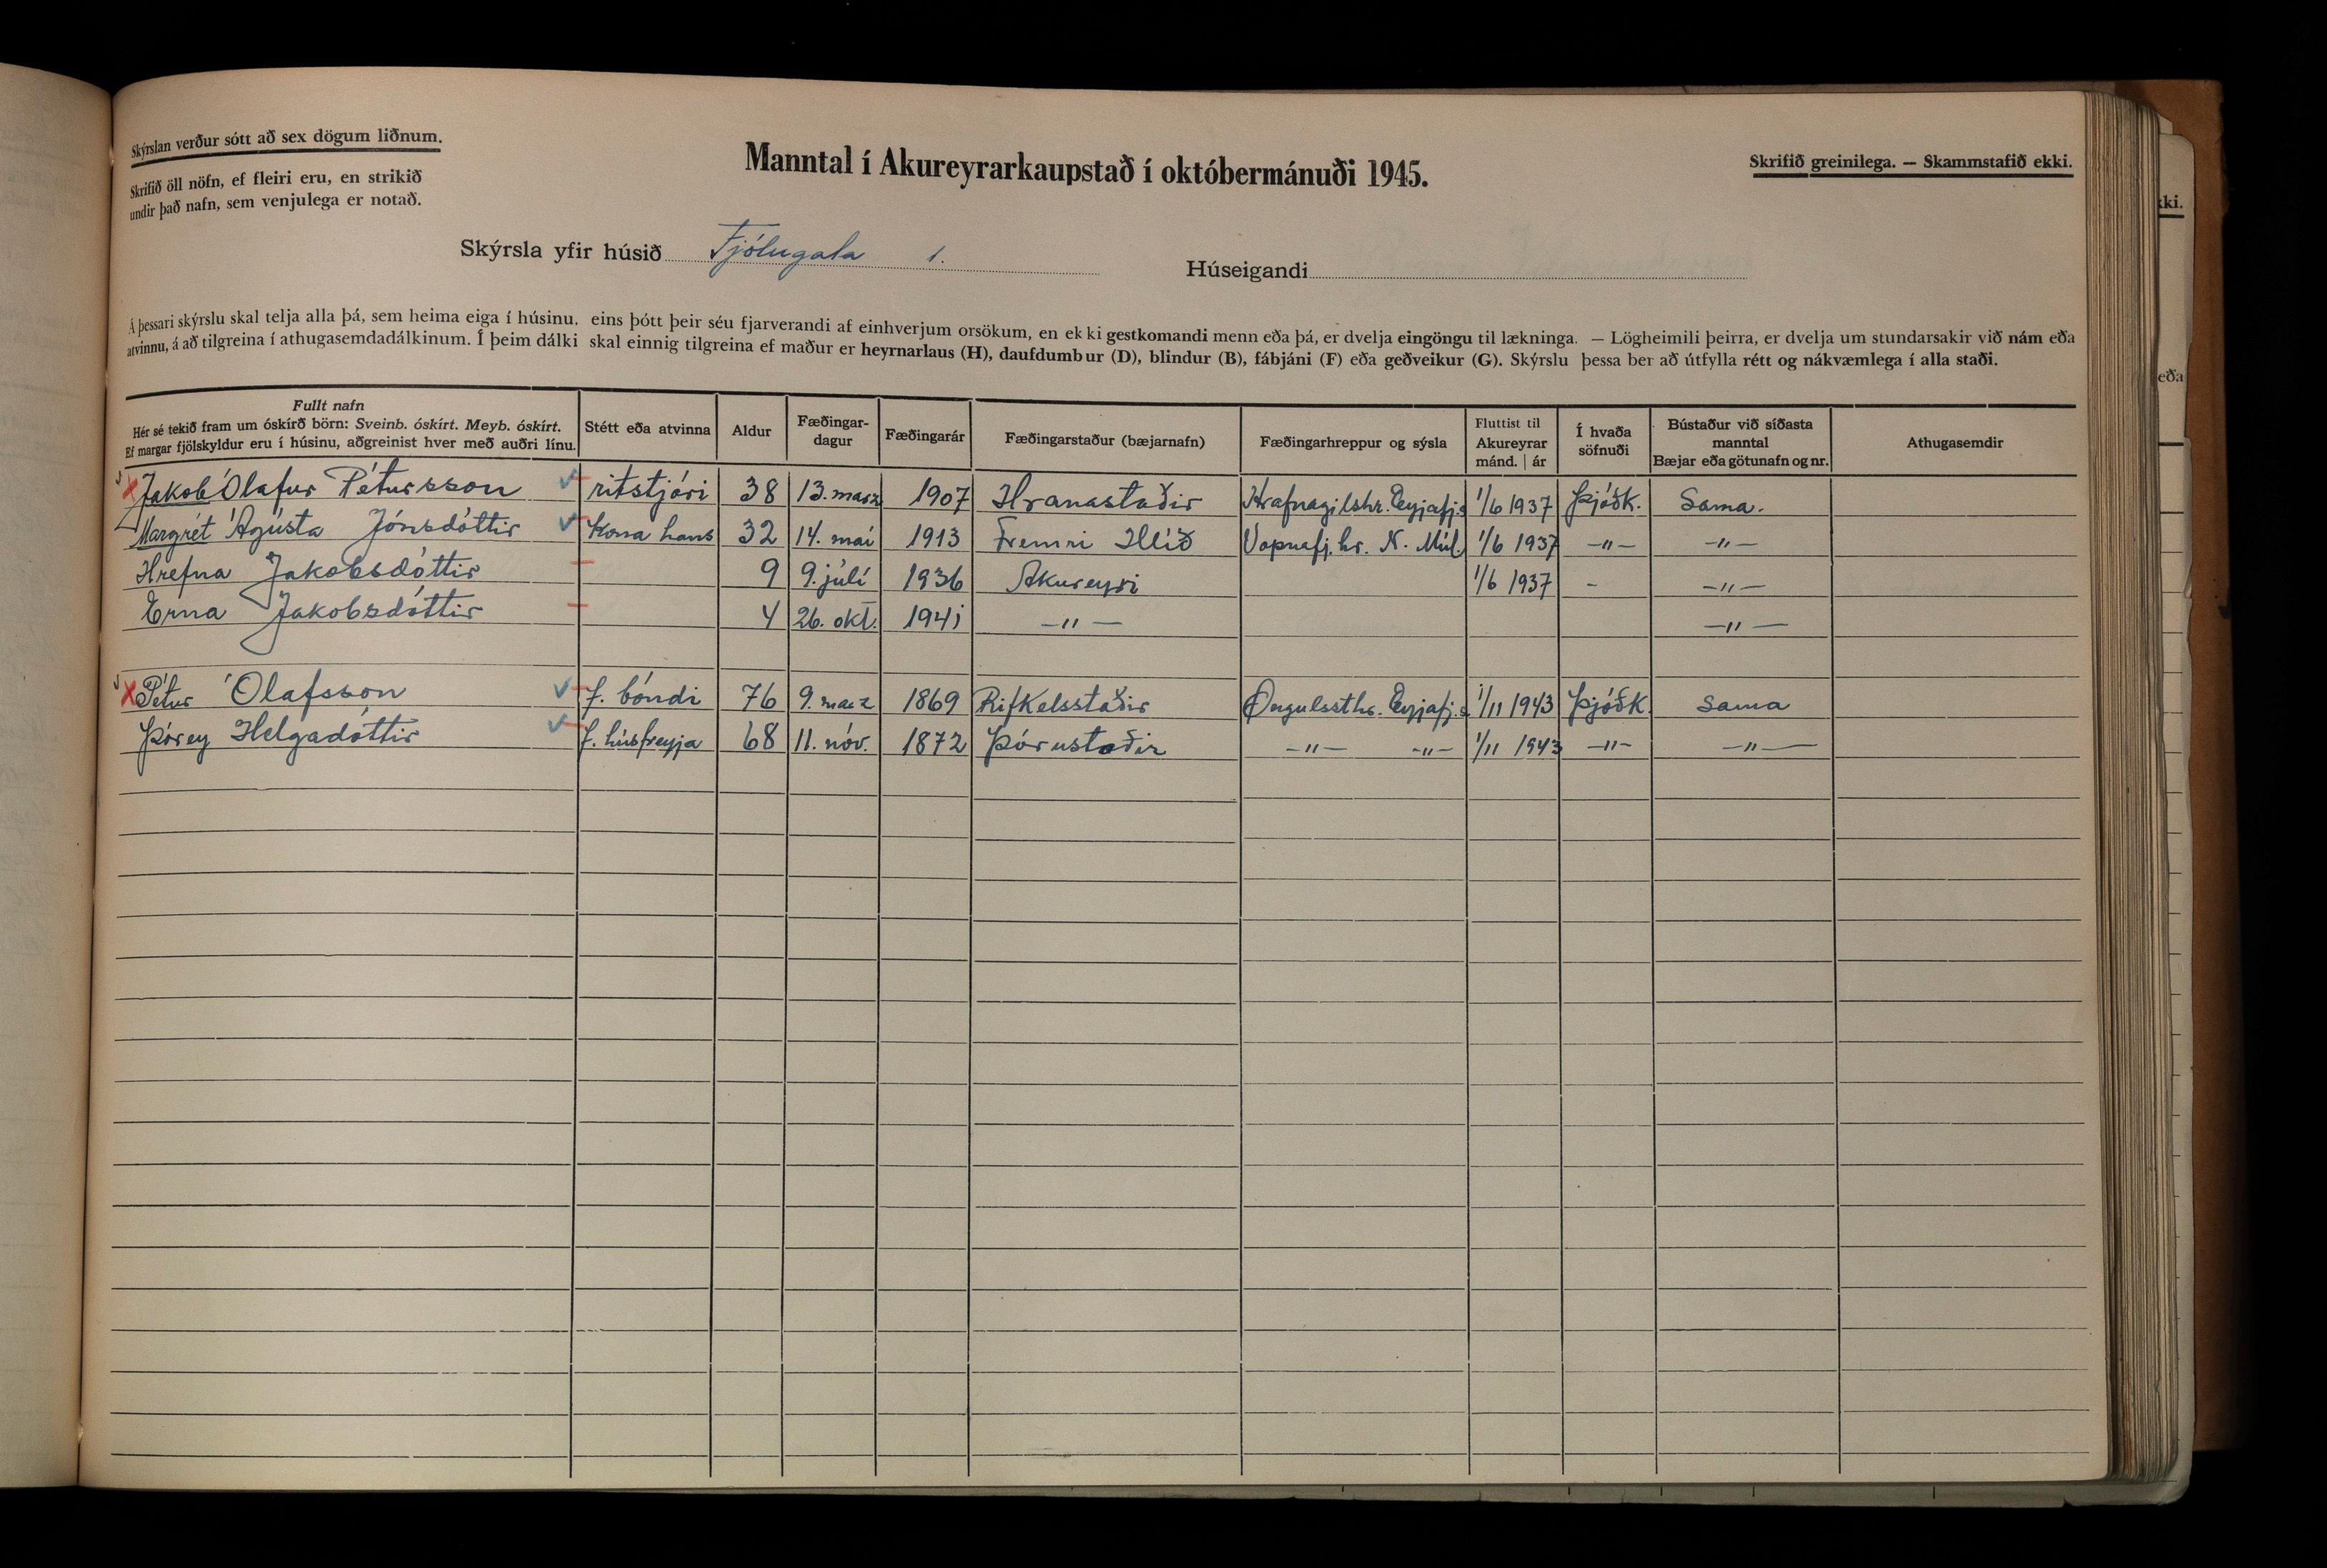 Skýrslan verður sótt að sex dögum liðnum.
Skrifið öll nöfn, ef fleiri eru, en strikið
undir það nafn, sem venjulega er notað.
Manntal í Akureyrarkaupstað í októbermánuði 1945.
Skrifið greinilega. — Skammstafið ekki.
Skýrsla yfir húsið Fjólugata 1.
Húseigandi
Á þessari skýrslu skal telja alla þá, sem heima eiga í húsinu, eins þótt þeir séu fjarverandi af einhverjum orsökum, en ekki gestkomandi menn eða þá, er dvelja eingöngu til lækninga. — Lögheimili þeirra, er dvelja um stundarsakir við nám eða
atvinnu, á að tilgreina í athugasemdadálkinum. Í þeim dálki skal einnig tilgreina ef maður er heyrnarlaus (H), daufdumbur (D), blindur (B), fábjáni (F) eða geðveikur (G). Skýrslu þessa ber að útfylla rétt og nákvæmlega í alla staði.
Fullt nafn
Hér sé tekið fram um óskírð börn: Sveinb. óskírt. Meyb. óskírt.
Ef margar fjölskyldur eru í húsinu, aðgreinist hver með auðri línu.
Stétt eða atvinna
Aldur
Fæðingar-
dagur
Fæðingarár
Fæðingarstaður (bæjarnafn)
Fæðingarhreppur og sýsla
Fluttist til
Akureyrar
mánd. | ár
Í hvaða
söfnuði
Bústaður við síðasta
manntal
Bæjar eða götunafn og nr.
Athugasemdir
Jakob Ólafur Pétursson ritstjóri 38 13. marz 1907 Hranastaðir Hrafnagilshr. Eyjafj.s 1/6 1937 Þjóðk. Sama.
Margrét Ágústa Jónsdóttir Kona hans 32 14. maí 1913 Fremri Hlíð Vopnafj.hr. N. Múl. 1/6 1937 —〃— —〃—
Hrefna Jakobsdóttir 9 9. júlí 1936 Akureyri 1/6 1937 - —〃—
Erna Jakobsdóttir 4 26. okt. 1941 —〃— —〃—
Pétur Ólafsson f. bóndi 76 9. marz 1869 Rifkelsstaðir Öngulssthr. Eyjafj.s 1/11 1943 Þjóðk. Sama
Þórey Helgadóttir f. húsfreyja 68 11. nóv. 1872 Þórustaðir —〃— —〃— 1/11 1943 —〃— —〃—
kki.
eða